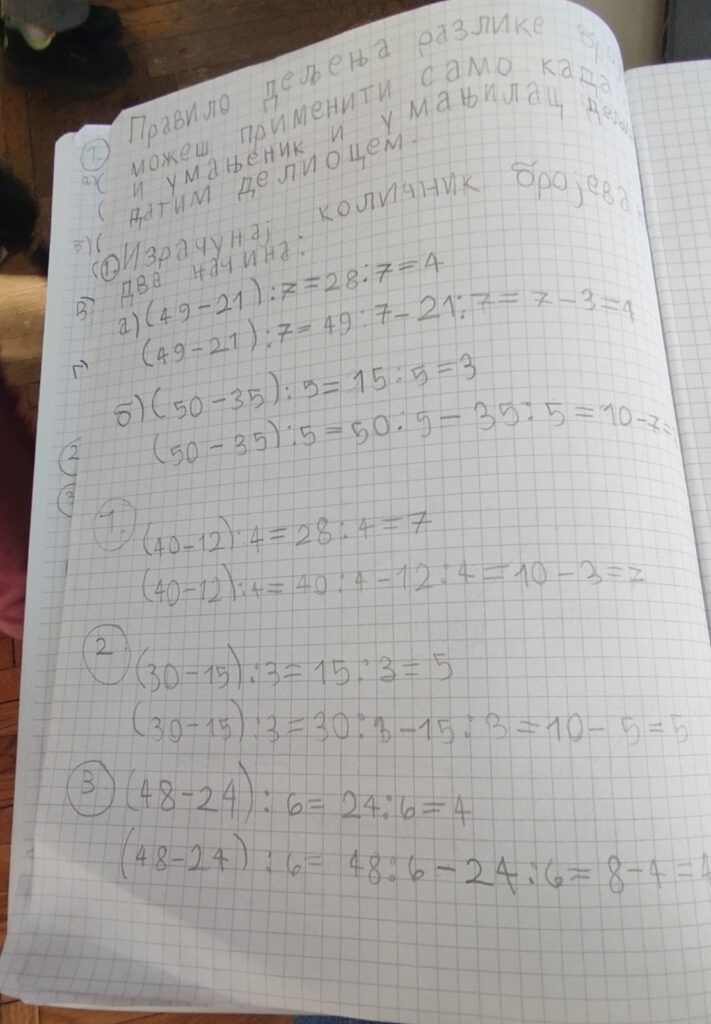 Правило дељења разлике
можеш применити само када
и умањеник и умањилац
датим делиоцем.
① Израчунај количник бројева
два начина:
а) (49-21):7=28:7=4
(49-21):7=49:7-21:7=7-3=4
б) (50-35):5=15:5=3
(50-35):5=50:5-35:5=10-7=
1. (40-12):4=28:4=7
(40-12):4=40:4-12:4=10-3=7
2 (30-15):3=15:3=5
(30-15):3=30:3-15:3=10-5=5
3 (48-24):6=24:6=4
(48-24):6=48:6-24:6=8-4=4